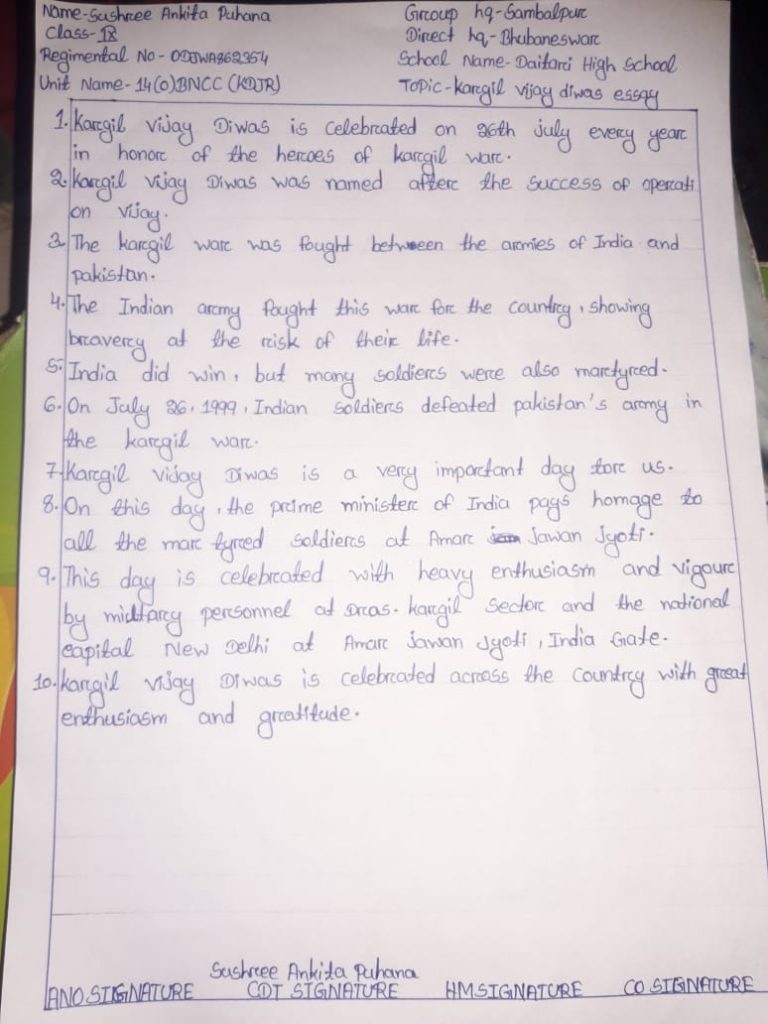 Name-Sushree Ankita Puhana
Class-IX
Regimental No - ODJWA862354
Unit Name- 14(O)BNCC (KDJR)
Group hq-Sambalpur
Direct hq-Bhubaneswar
School Name-Daitari High School
Topic-kargil vijay diwas essay
1. Kargil Vijay Diwas is celebrated on 26th july every year
in honor of the heroes of kargil war.
2. Kargil Vijay Diwas was named after the success of operati
on vijay.
3. The kargil war was fought between the armies of India and
pakistan.
4. The Indian army fought this war for the country, showing
bravery at the risk of their life.
5. India did win, but many soldiers were also martyred.
6. On July 26, 1999, Indian soldiers defeated pakistan's army in
the kargil war.
7. Kargil vijay Diwas is a very important day for us.
8. On this day, the prime minister of India pays homage to
all the mar tyred soldiers at Amar Jawan Jyoti.
9. This day is celebrated with heavy enthusiasm and vigour
by military personnel at Dras. kargil Sector and the national
capital New Delhi at Amar Jawan Jyoti, India Gate.
10. kargil vijay Diwas is celebrated across the country with great
enthusiasm and greatitude.
Sushree Ankita Puhana
ANO SIGNATURE CDT SIGNATURE HM SIGNATURE CO SIGNATURE